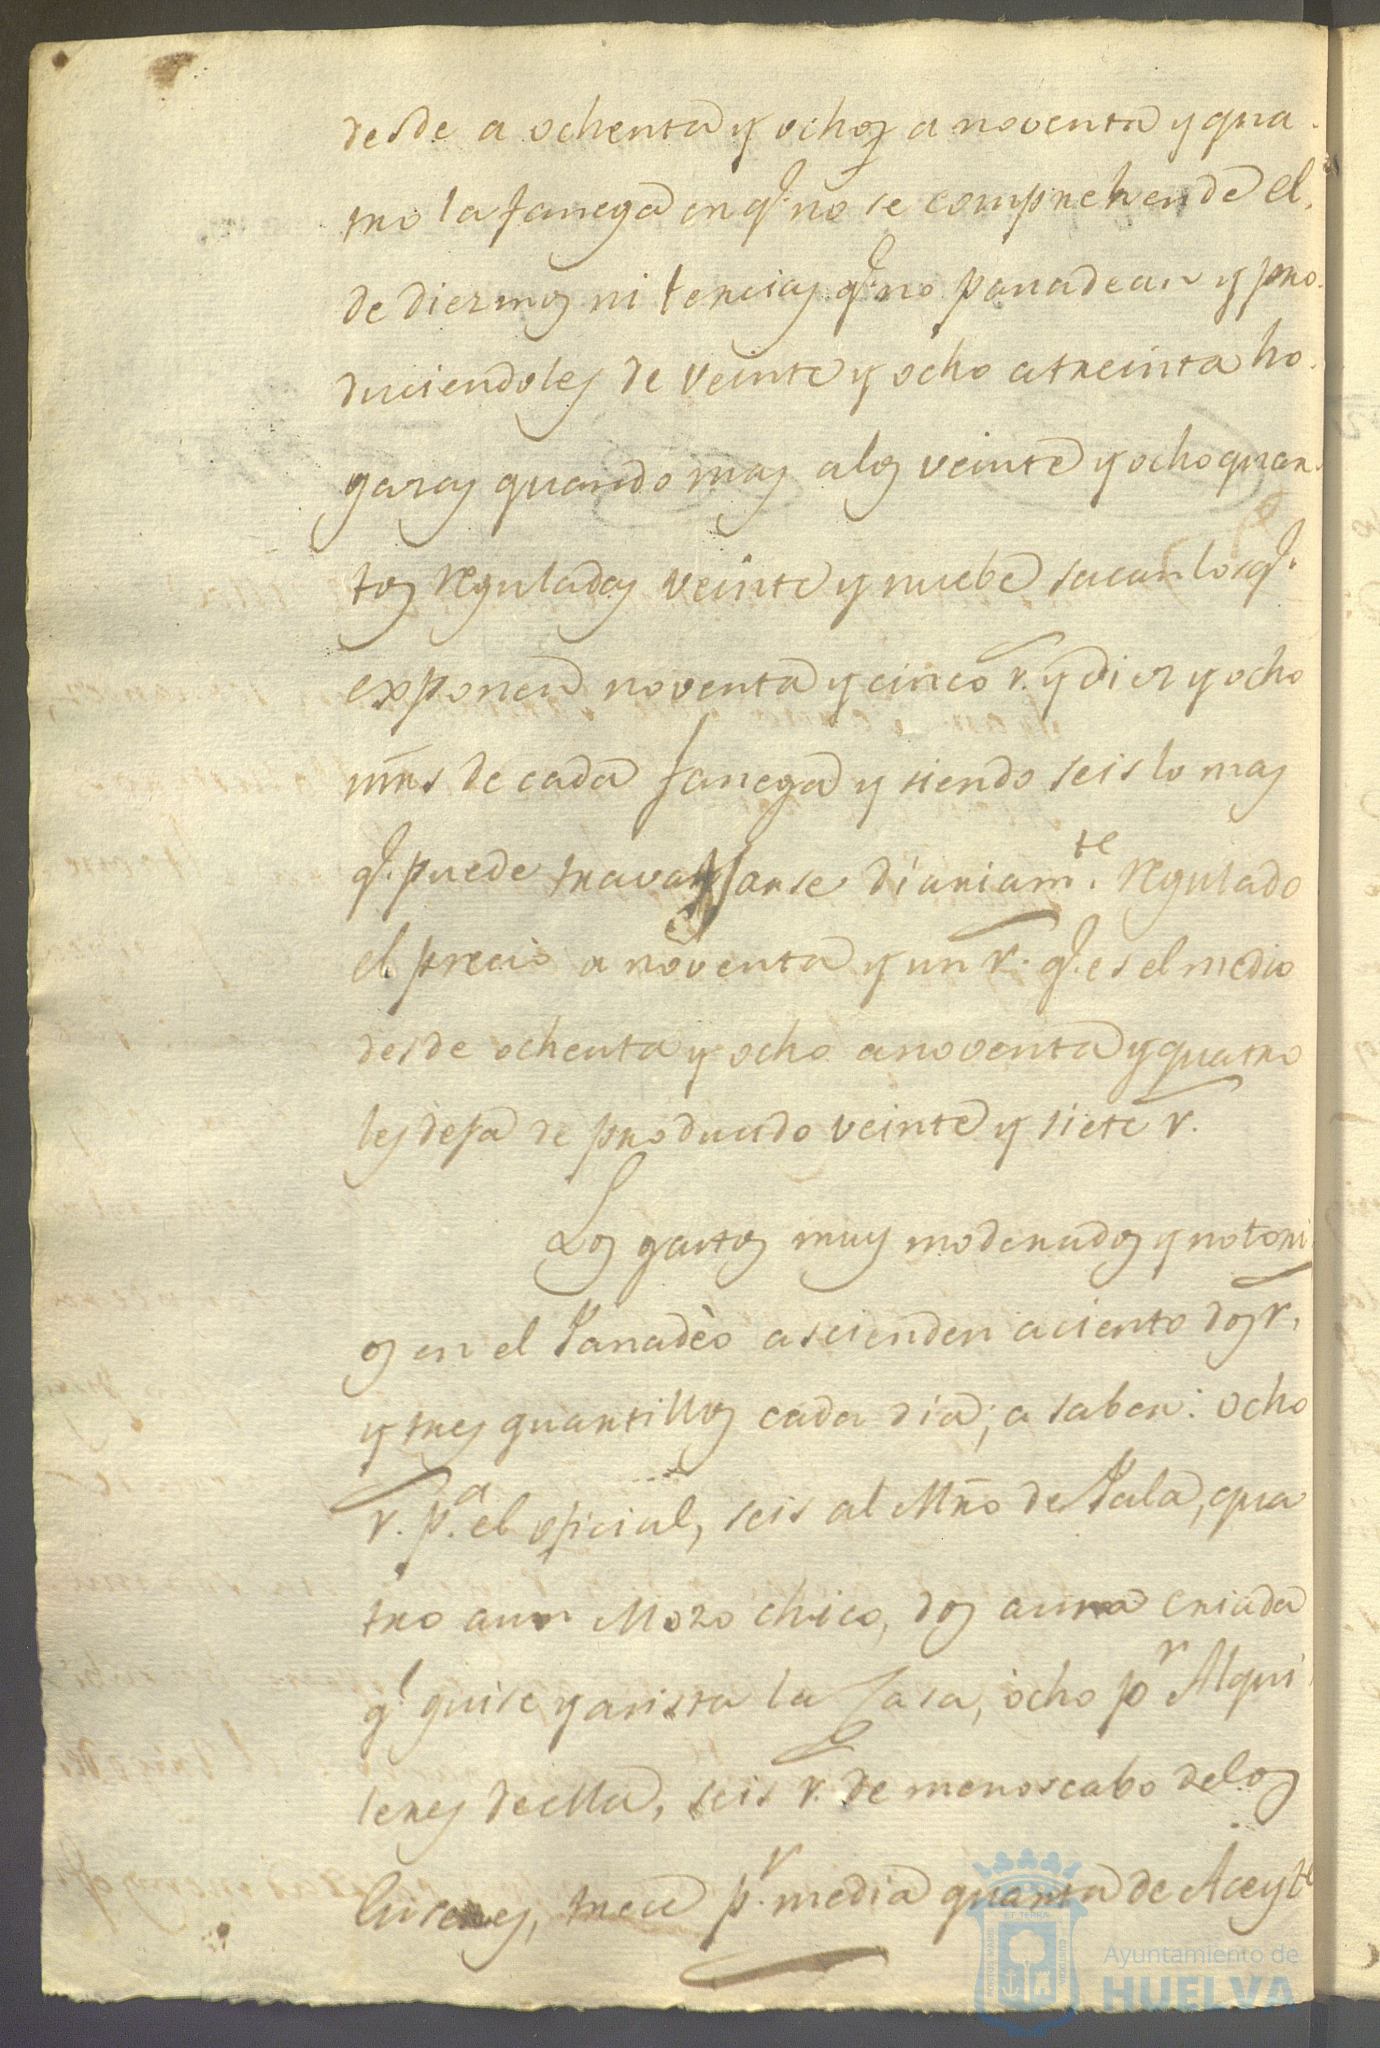 desde a ochenta y ochos a noventa y qua
tro la fanega en q.e no se comprehende el
de diezmos ni tercias q.e no panadean y pro
duciendoles de veinte y ocho a treinta ho
gazas quando mas a los veinte y ocho quar
tos regulados veinte y nuebe sacan los q.e
exponen noventa y cinco r.s y diez y ocho
mrs de cada fanega y siendo seis lo mas
q.e puede travajarse diariam.te regulado
el precio a noventa y un r.s q.e es el medio
desde ochenta y ocho a noventa y quatro
les deja de producido veinte y siete r.s
Los gastos muy moderados y notori
os en el Panadèo ascienden a ciento dos r.s
y tres quartillos cada dia; a saber: ocho
r.s p.a el oficial, seis al Mro de Pala, qua
tro a un Mozo chico, dos a una criada
q.e guise y asista la Casa, ocho p.r Alqui
leres de ella, seis r.s de menoscabo de los
trece p.r media quarta de Aceyte
Ayuntamiento de
HUELVA